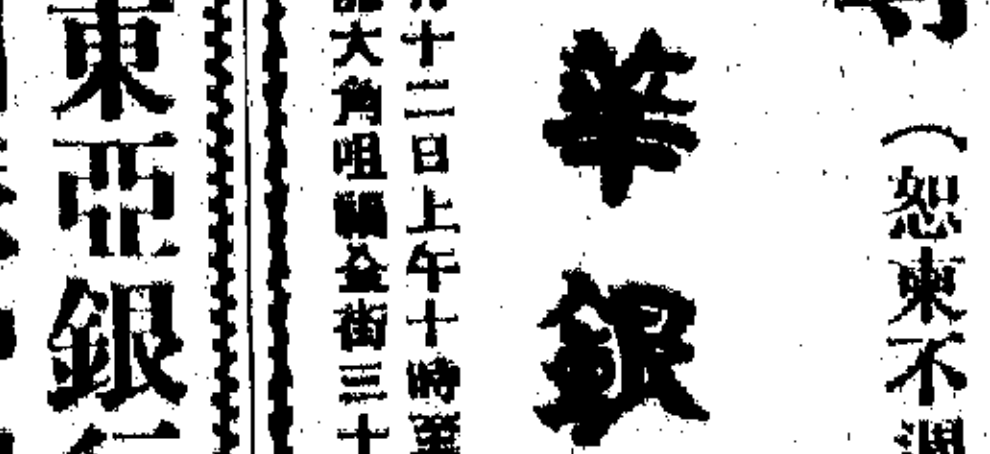 （恕柬不週
華銀
十二日上午十時至
大角咀福全街三十
東亞銀行